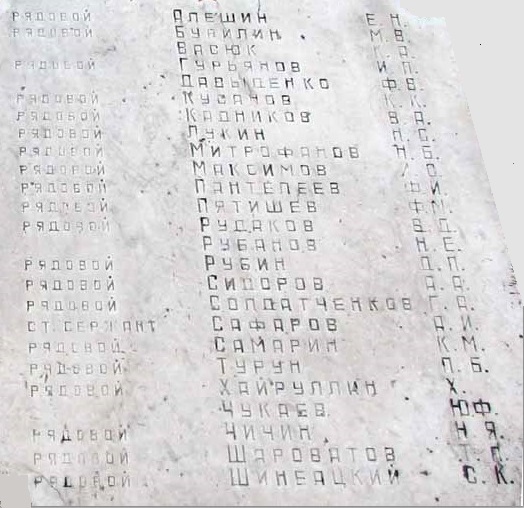 РЯДОВОЙ АЛЕШИН Е. Н.
РЯДОВОЙ БУЙЛИН М. В.
ВАСЮК
РЯДОВОЙ ГУРЬЯНОВ И. П.
ДАВЫДЕНКО Ф. В.
РЯДОВОЙ К. К.
РЯДОВОЙ КАДНИКОВ В. А.
РЯДОВОЙ ЛУКИН
РЯДОВОЙ МИТРОФАНОВ Н. Б.
РЯДОВОЙ МАКСИМОВ
РЯДОВОЙ ПАНТЕЛЕЕВ Ф. И.
РЯДОВОЙ ПЯТИШЕВ Ф. М.
РЯДОВОЙ РУДАКОВ
РУБАНОВ Н. Е.
РЯДОВОЙ РУБИН Д. П.
РЯДОВОЙ СИДОРОВ А. А.
РЯДОВОЙ СОЛДАТЧЕНКОВ Г. А.
СТ. СЕРЖАНТ САФАРОВ А. И.
РЯДОВОЙ САМАРИН К. М.
РЯДОВОЙ ТУРУН П. Б.
РЯДОВОЙ ХАЙРУЛЛИН Х.
ЧУКАЕВ Ю. Ф.
РЯДОВОЙ ЧИЧИН Н Я.
РЯДОВОЙ ШАРОВАТОВ
РЯДОВОЙ ШИНБАЦКИЙ С. К.